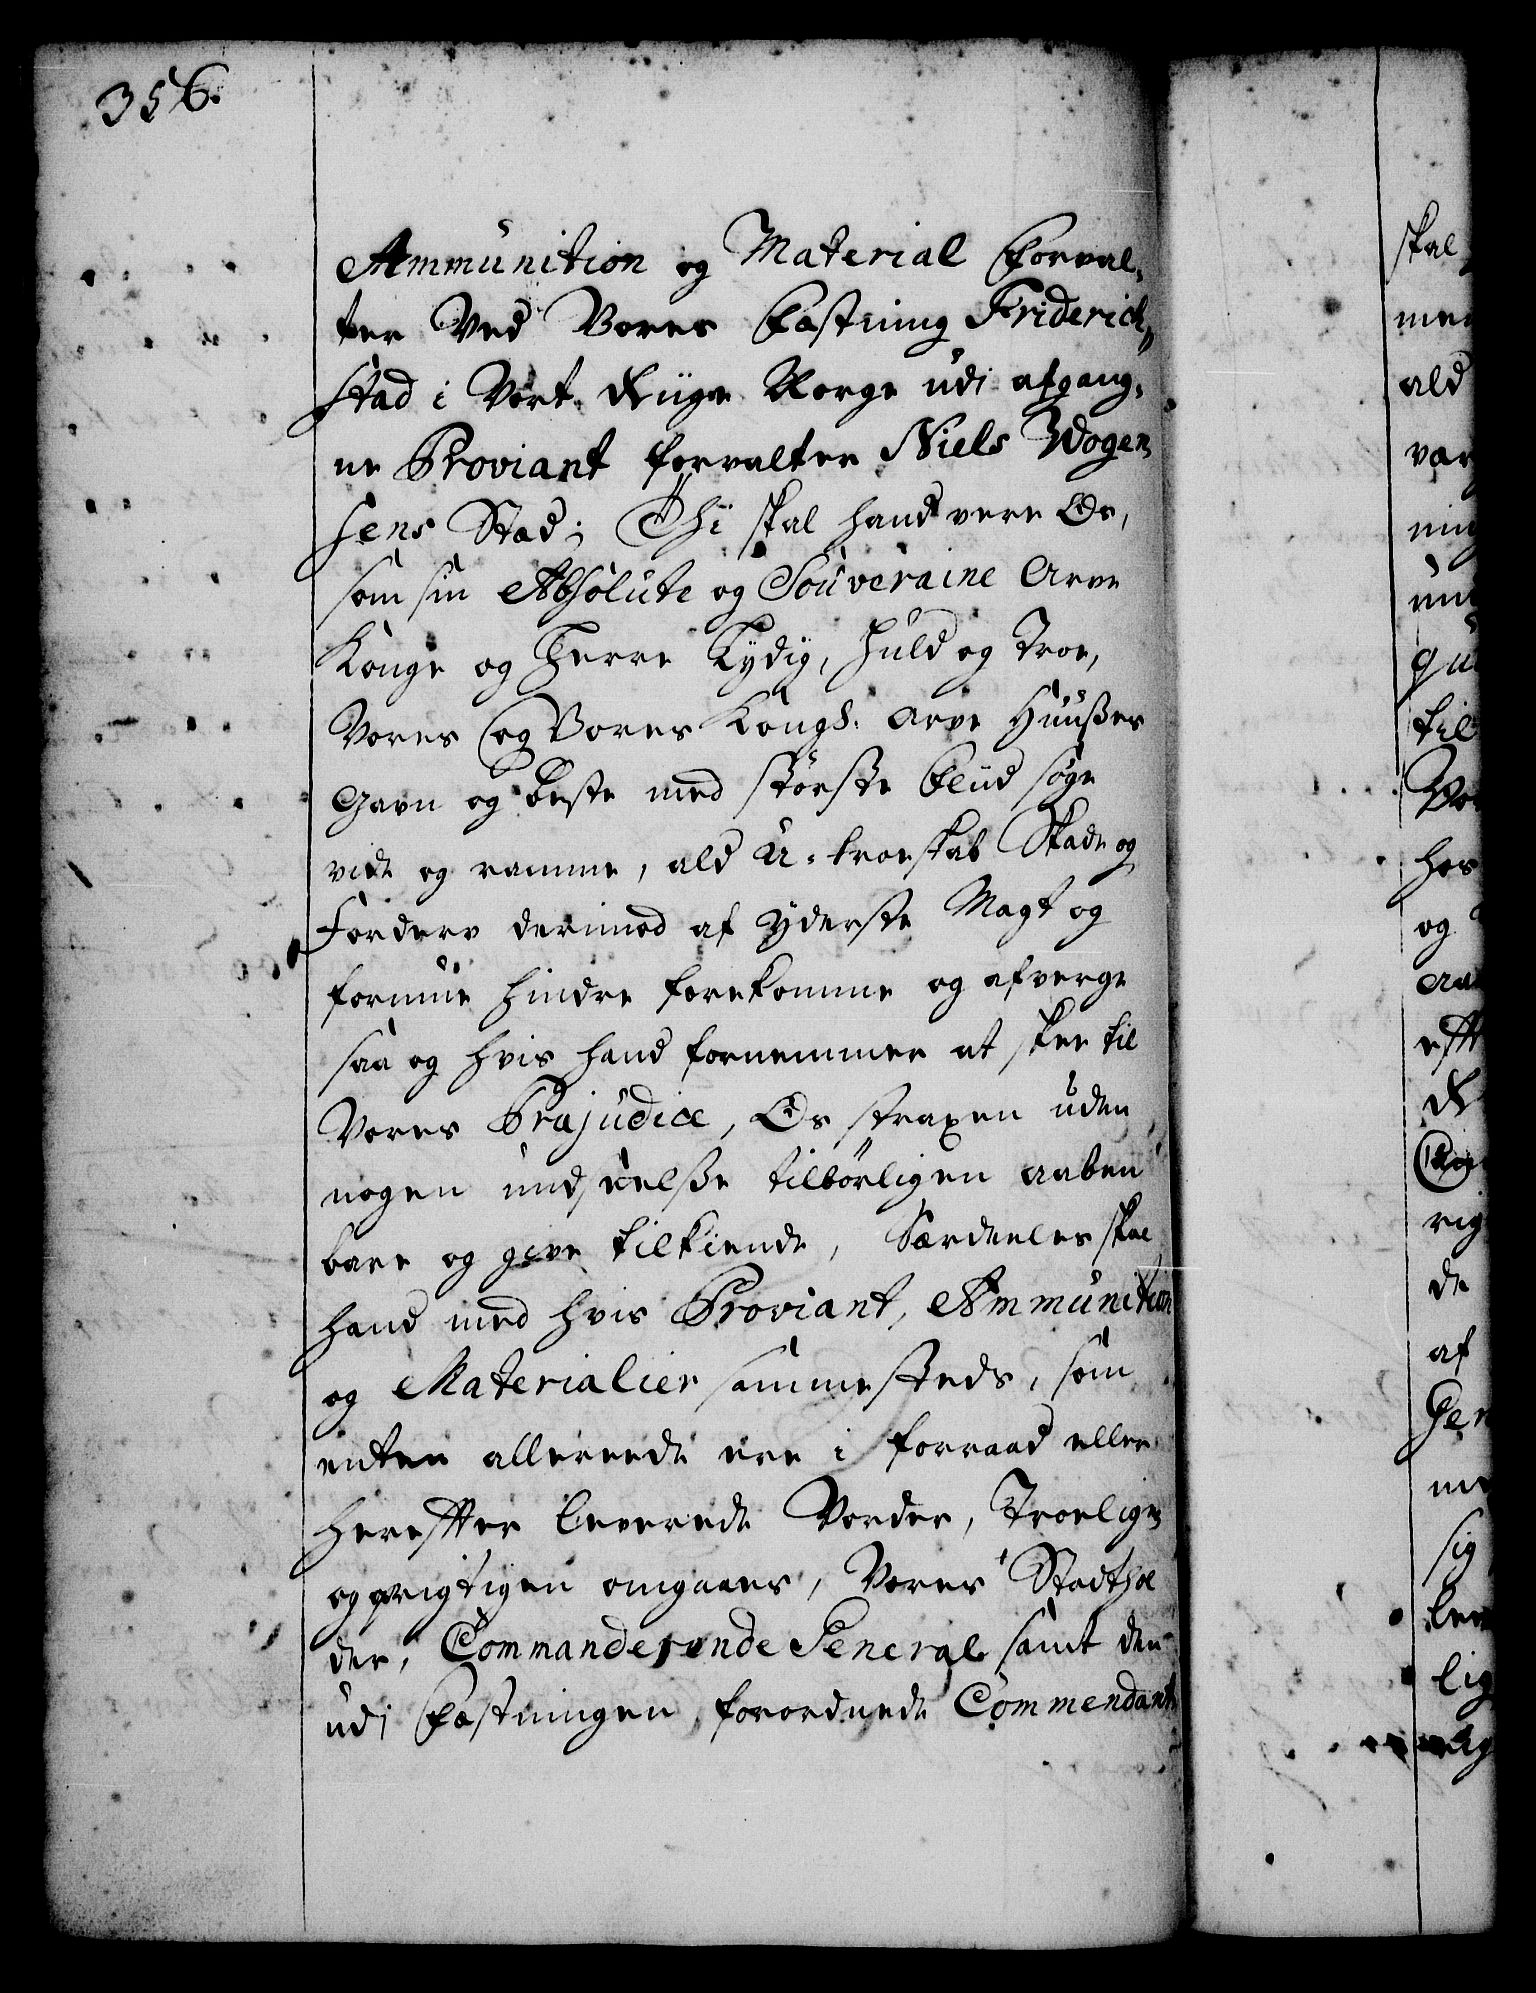 356.
Ammunition og Material Forval-
ter Ved Vores Fæstning Friderich-
stad i Vort Riige Norge udi afgang-
ne Proviant forvalter Niels Wogen
sens Stad; Thi skal hand være Os,
som sin Absolute og Souveraine Arve
Konge og Herre Lydig, huld og Troe,
Vores og Vores Kongl: Arve Huußes
Gavn og beste med største Fliid søge
vide og ramme, ald U-troeskab Skade og
Forderv derimod af yderste Magt og
formue hindre forekomme og afverge
saa og hvis hand fornemmer at skee til
Vores Præjudice, Os straxen uden
nogen undseelße tilbørligen aaben
bare og give tilkiende, Særdeeles skal
hand med hvis Proviant, Ammunition
og Materialier sammesteds, som
enten allereede ere i forraad eller
herefter leverede Vorder, Troeligen
oprigtigen omgaaes, Vores Stadthol
der, Commanderende General samt den
udi Fæstningen forordnede Commendant
skal
ald
til
hos
og
de
af
sig